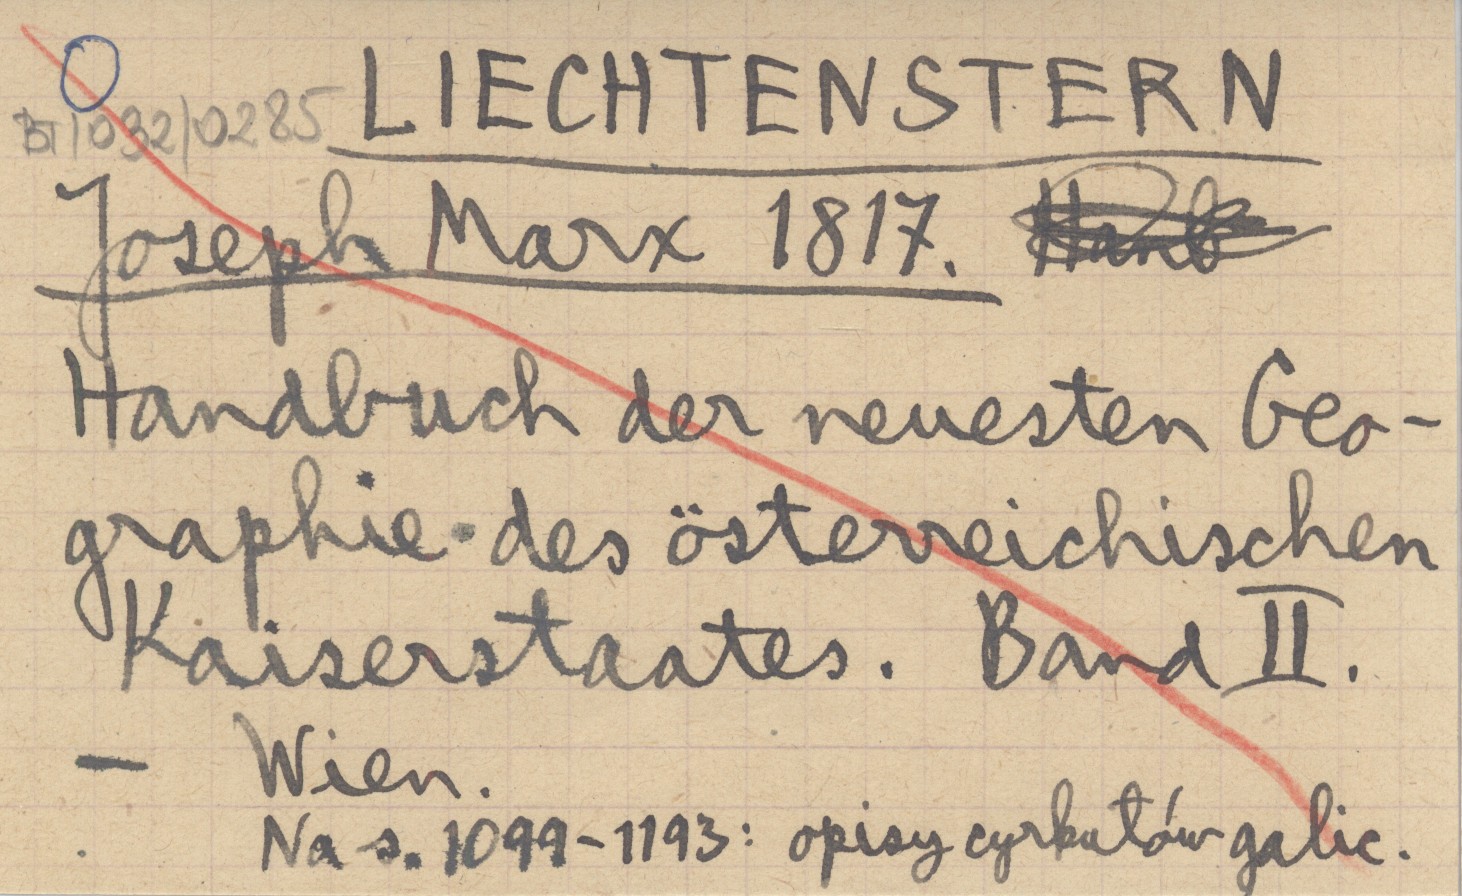 LIECHTENSTERN
BT/032/0285
Joseph Marx 1817. Hanb
Handbuch der neuesten Geo-
graphie des österreichischen
Kaiserstaates. Band II.
— Wien.
Na s. 1099-1193: opisy cyrkułów galic.